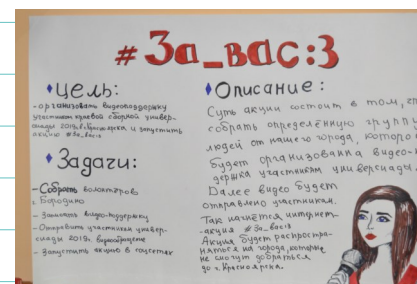 #За_вас:3
Цель:
- организовать видеоподдержку
участникам краевой сборной универ-
сиады 2019, и запустить
акцию #За_вас:3
Задачи:
- Собрать волонтёров
г. Бородино
- Записать видео-поддержку
- Отправить участникам универ-
сиады 2019г. видеообращение
- Запустить акцию в соцсетях
Описание:
Суть акции состоит в том,
собрать определённую группу
людей от нашего города,
будет организованна видео-
держка участникам универсиады,
Далее видео будет
отправлено участникам.
Так начнётся интернет-
-акция #За_вас:3
Акция будет распростра-
няться на города, которые
не смогут добраться
до г. Красноярска.